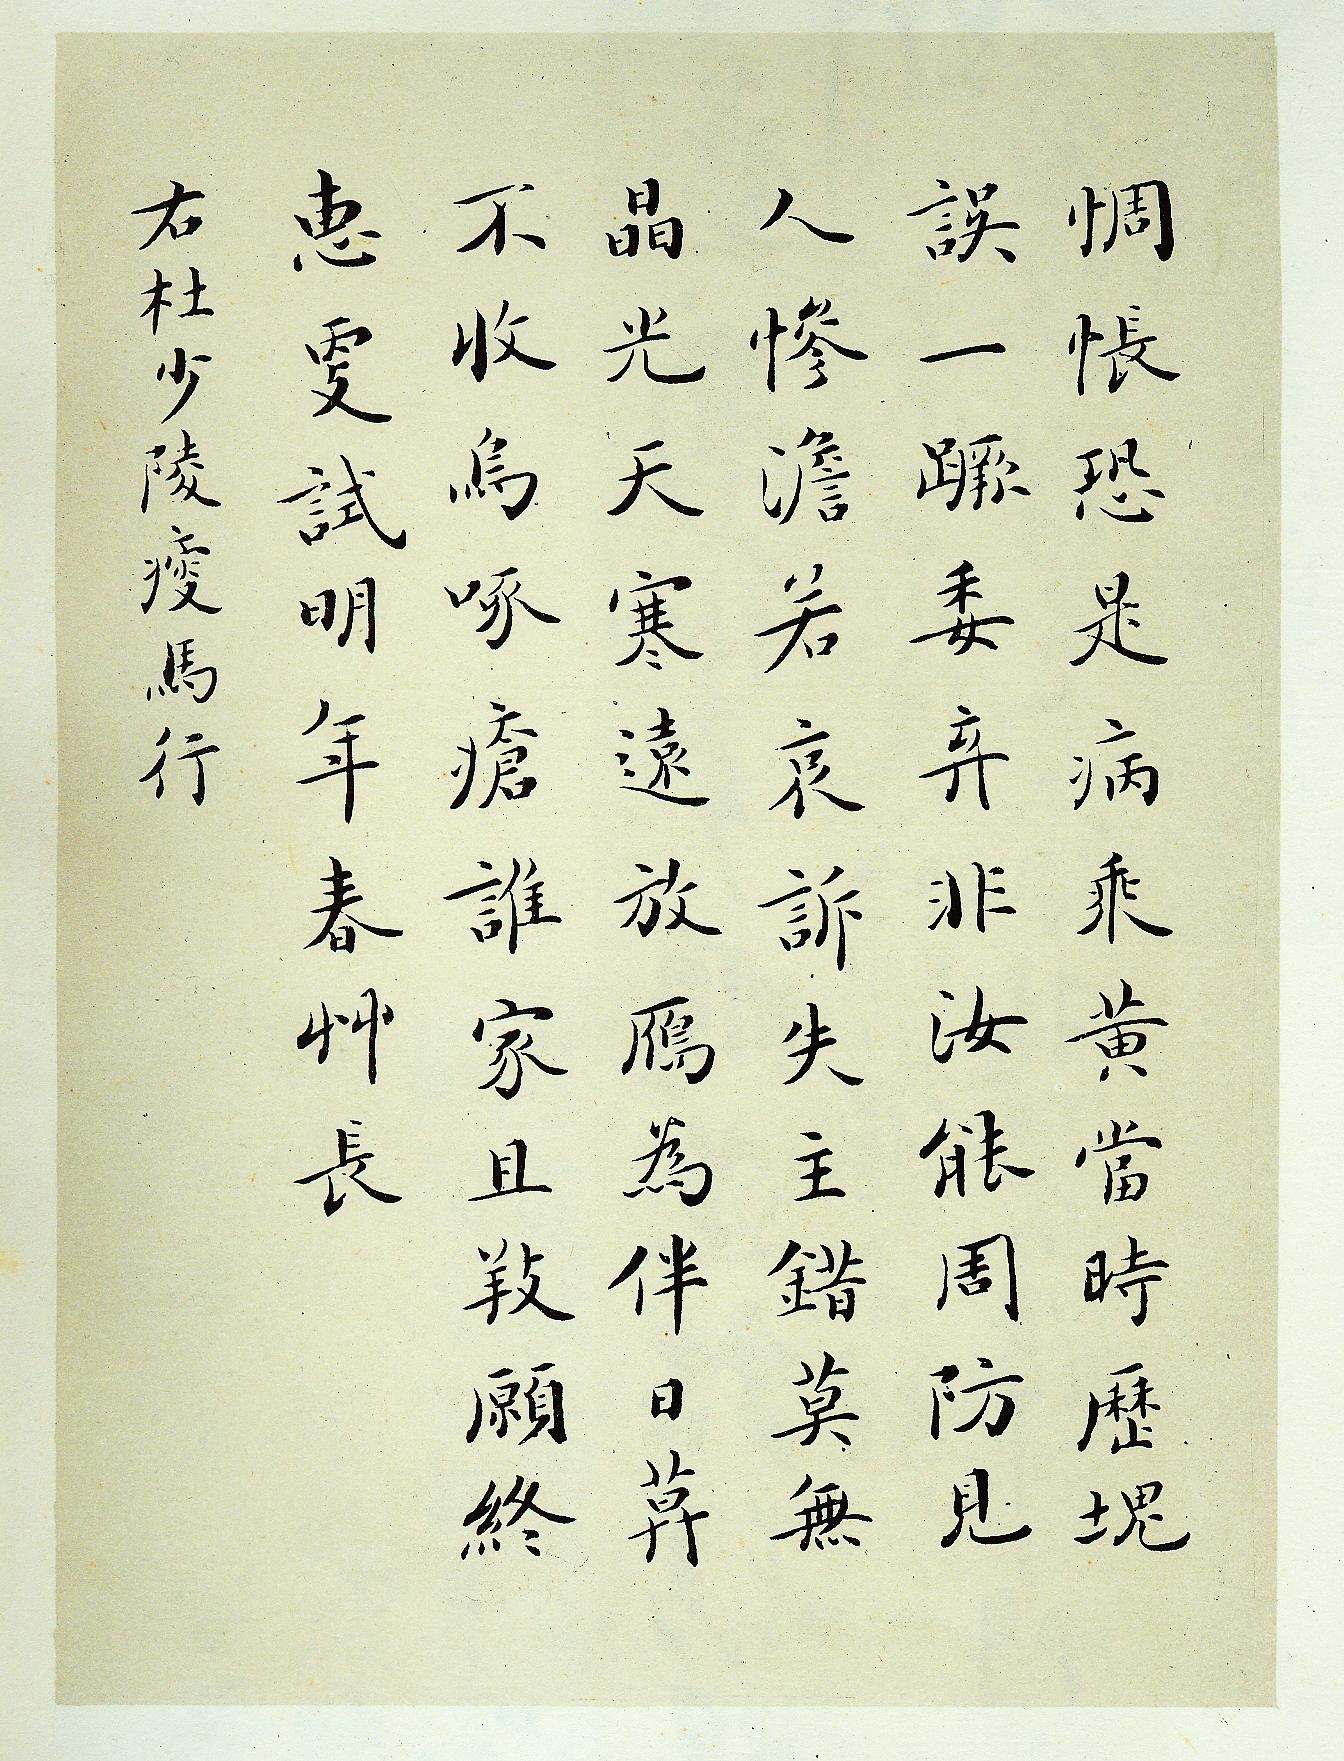 惆悵恐是病乘黃當時歷塊
誤一蹶委弃非汝能周防見
人慘澹若哀訴失主錯莫無
晶光天寒遠放鴈為伴日暮
不收烏啄瘡誰家且養願終
惠更試明年春艸長
右杜少陵瘦馬行